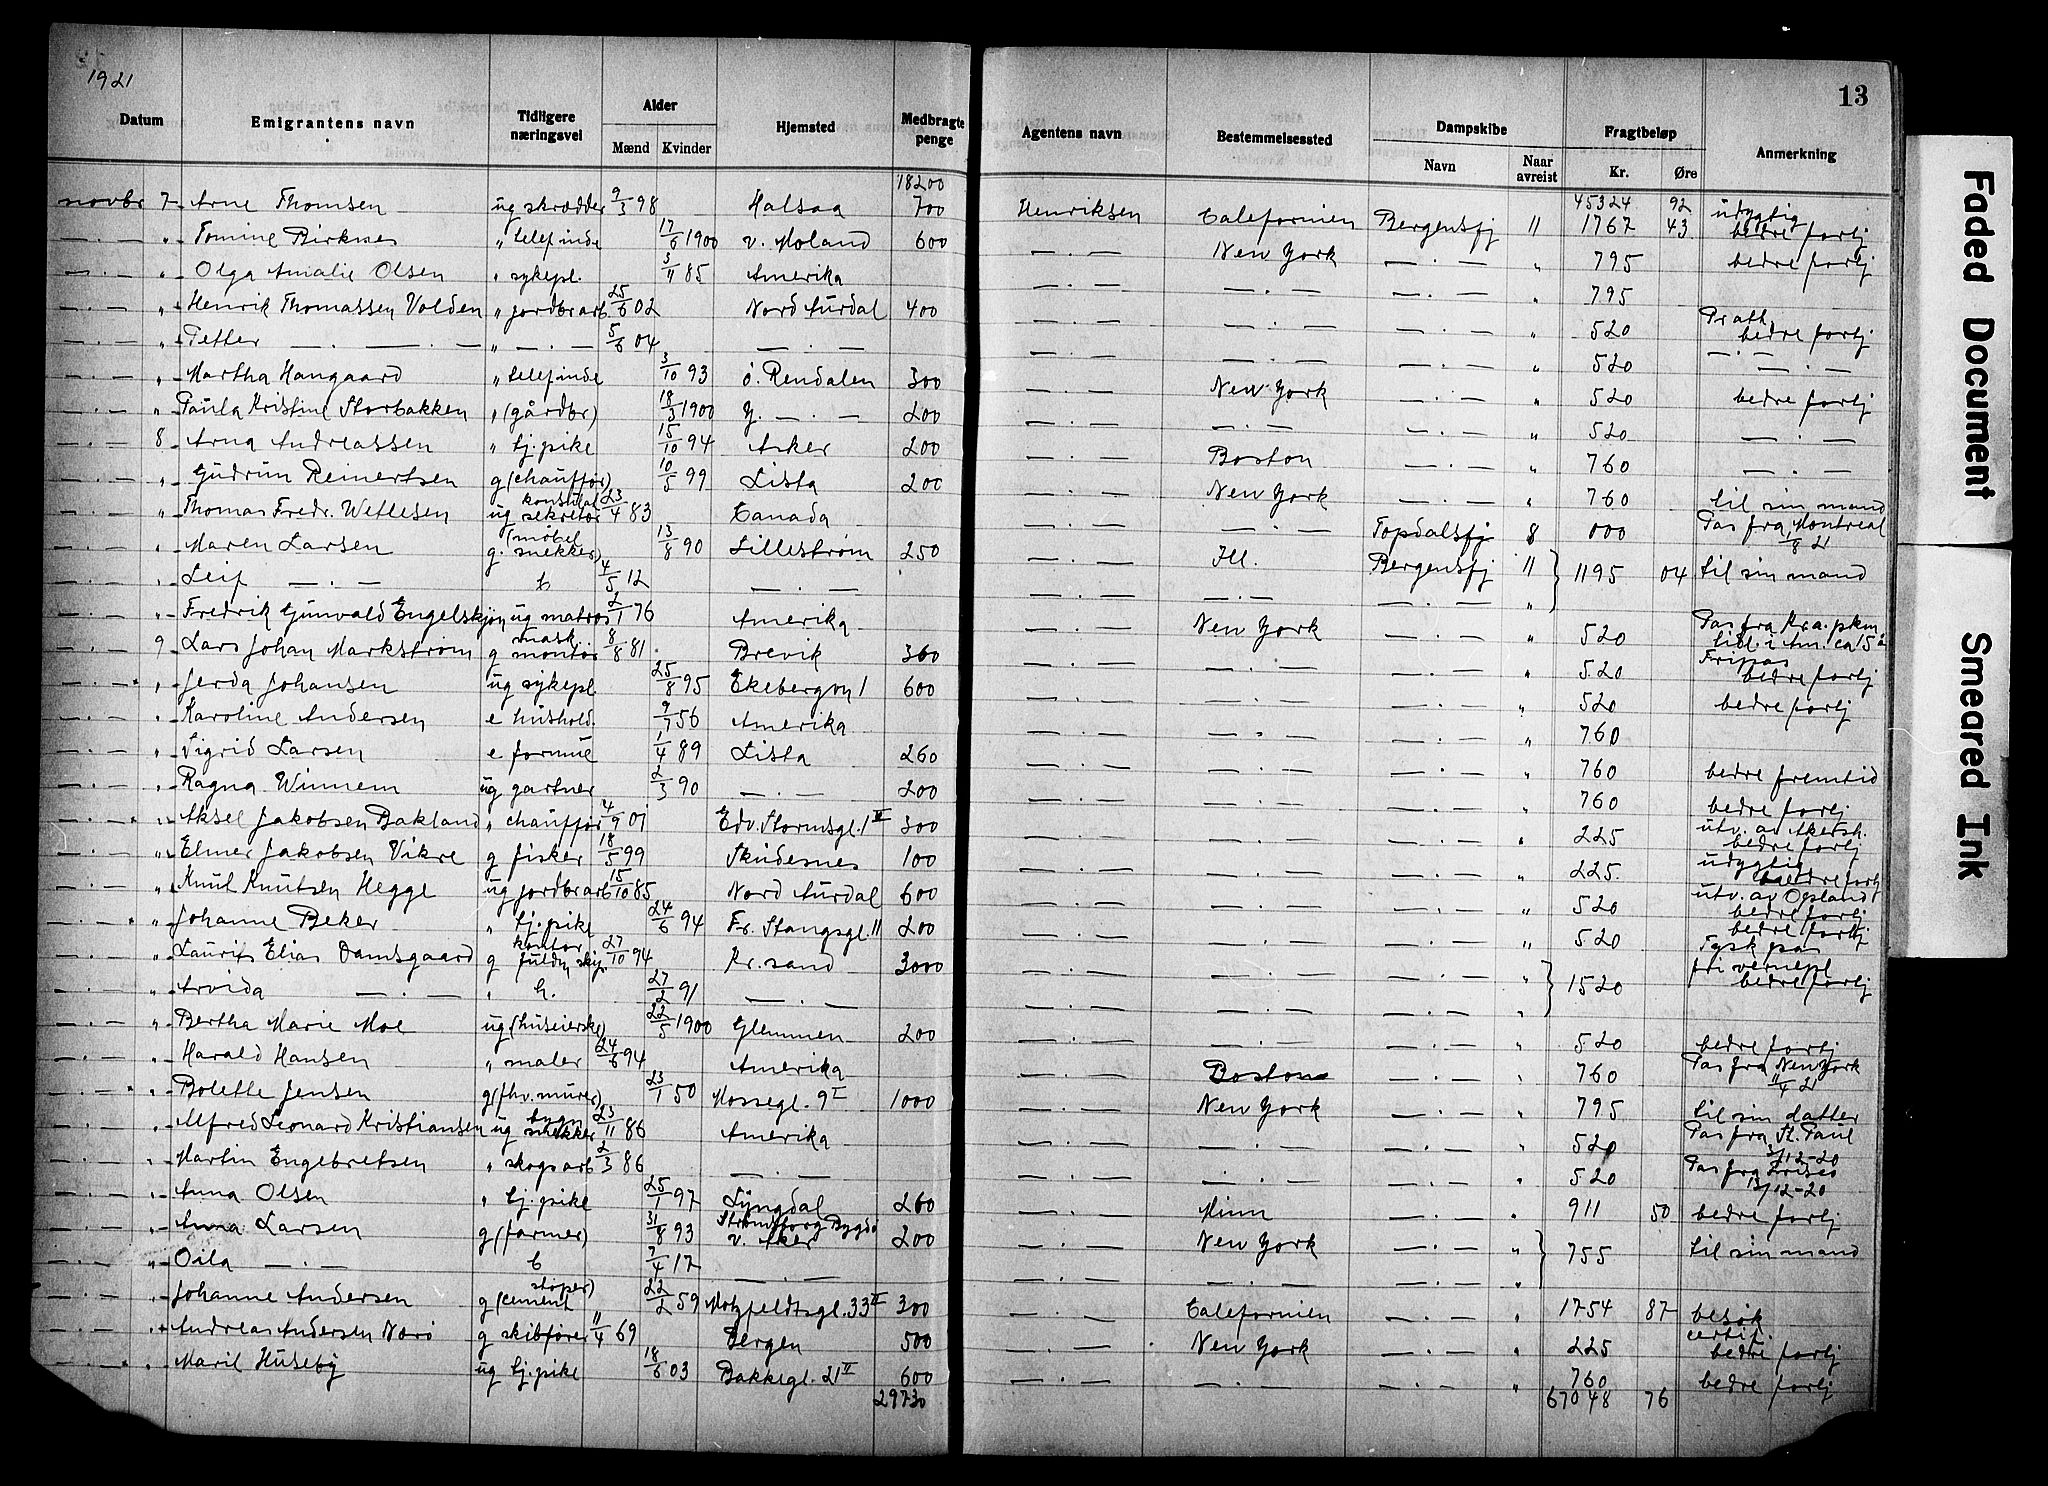 1921
13
Datum Emigrantens navn Tidligere næringsvei Alder Mænd Kvinder Hjemsted Medbragte penge Agentens navn Bestemmelsessted Dampskibe Navn Naar avreist Fragtbeløp Kr. Øre Anmerkning
18200 45324 92
novbr 7 Arne Thomsen ug skrædder 9/3 98 Halsaa 700 Henriksen Californien Bergensfj 11 1767 43 udygtig bedre forhj
— . — " Tomine Birknes " telefinde 17/6 1900 v. Moland 600 — . — New York — . — " 795 bedre forhj
— . — " Olga Amalie Olsen " sykepl. 3/11 85 Amerika — . — — . — — . — " 795
— . — " Henrik Thomassen Volden " jordbrarb 25/6 02 Nord Aurdal 400 — . — — . — — . — " 520 bedre forhj
— . — " Petter — . — . — " — . — 5/6 04 — . — — . — — . — — . — " 520 — . —
— . — " Martha Haugaard " telefinde 3/10 93 ø. Rendalen 300 — . — New York — . — " 520 bedre forhj
— . — " Paula Kristine Storbakken " (gårdbr) 18/3 1900 y. — . — 200 — . — — . — — . — " 520 — . —
— . — 8 Arna Andreassen " tj. pike 15/10 94 Asker 200 — . — Boston — . — " 760 — . —
— . — " Gudrun Reinertsen g (chauffør) 10/5 99 Lista 200 — . — New York — . — " 760 til sin mand
— . — " Thomas Fredr. Wetlesen ug konsulat sekretær 23/4 83 Canada — . — — . — Topdalsfj 8 000 Pas fra Montreal 1/8 21
— . — " Maren Larsen g. (møbel snekker) 13/8 90 Lillestrøm 250 — . — Ill. Bergensfj 11 1195 04 til sin mand
— . — " Leif — . — b 4/5 12 — . — — . — — . — — . — "
— . — " Fredrik Gunvald Engelskjøn ug matros 2/1 76 Amerika — . — New York — . — " 520 Pas fra Kra. pkm tidl. i Am. ca 15 å
— . — 9 Lars Johan Markstrøm g mask. montør 8/8 81 Brevik 360 — . — — . — — . — " 520 Fripas bedre forhj
— . — " Jerda Johansen ug sykepl 25/8 95 Ekebergvn 1 600 — . — — . — — . — " 520 bedre forhj
— . — " Karoline Andersen e hushold. 9/7 56 Amerika — . — — . — — . — " 760
— . — " Sigrid Larsen e formue 1/4 89 Lista 260 — . — — . — — . — " 760 bedre fremtid
— . — " Ragna Winnem ug gartner 2/3 90 — . — 200 — . — — . — — . — " 760 bedre forhj
— . — " Aksel Jakobsen Bakland " chauffør 4/9 01 Edv. Stormsgt. 1 II 300 — . — — . — — . — " 225 utv. av Akersh. bedre forhj
— . — " Elmer Jakobsen Vikre g fisker 18/5 99 Skudesnes 100 — . — — . — — . — " 225 udygtig bedre forhj
— . — " Knut Knutsen Hegge ug jordbrarb 15/10 85 Nord Aurdal 600 — . — — . — — . — " 520 utv. av Opland bedre forhj
— . — " Johanne Beker " tj. pike 24/6 94 Fr. Stangsgt. 11 200 — . — — . — — . — " 520 bedre forhj Tysk pas
— . — " Laurits Elias Damsgaard g kontor fuldm. skip. 27/10 94 Kr. sand 3000 — . — — . — — . — " 1520 fri vernepl bedre forhj
— . — " Arvida — . — " h. 27/2 91 — . — — . — — . — — . — "
— . — " Bertha Marie Moe ug (huseierske) 22/5 1900 Glemmen 200 — . — — . — — . — " 520 bedre forhj
— . — " Harald Hansen " maler 24/6 94 Amerika — . — Boston — . — " 760 Pas fra New York 11/4 21
— . — " Bolette Jensen g (fhv. murer) 23/1 50 Mossegt. 9 I 1000 — . — New York — . — " 795 til sin datter
— . — " Alfred Leonard Kristiansen ug bygn snekker 23/11 86 Amerika — . — — . — — . — " 520 Pas fra St. Paul 3/12-20
— . — " Martin Engebretsen " skogsarb 2/3 86 — . — — . — — . — — . — " 520 Pas fra Frisco 13/12-20
— . — " Anna Olsen " tj. pike 25/1 97 Lyngdal 260 — . — Minn — . — " 911 50 bedre forhj
— . — " Anna Larsen g (farmer) 31/8 93 Strømsborg Bygdø v. Aker 200 — . — New York — . — " 755 til sin mand
— . — " Oila — . — b 7/4 17 — . — — . — — . — — . — "
— . — " Johanne Andersen g (cement støper) 22/2 59 Motzfeldtsgt. 33 II 300 — . — Californien — . — " 1754 87 besøk
— . — " Andreas Andersen Norø g skibfører 11/4 69 Bergen 500 — . — New York — . — " 225 certif. bedre forhj
— . — " Marit Huseby ug tj. pike 18/6 03 Bakkegt. 21 II 600 — . — — . — — . — " 760 bedre forhj
29730 67048 76
Faded Document
Smeared Ink